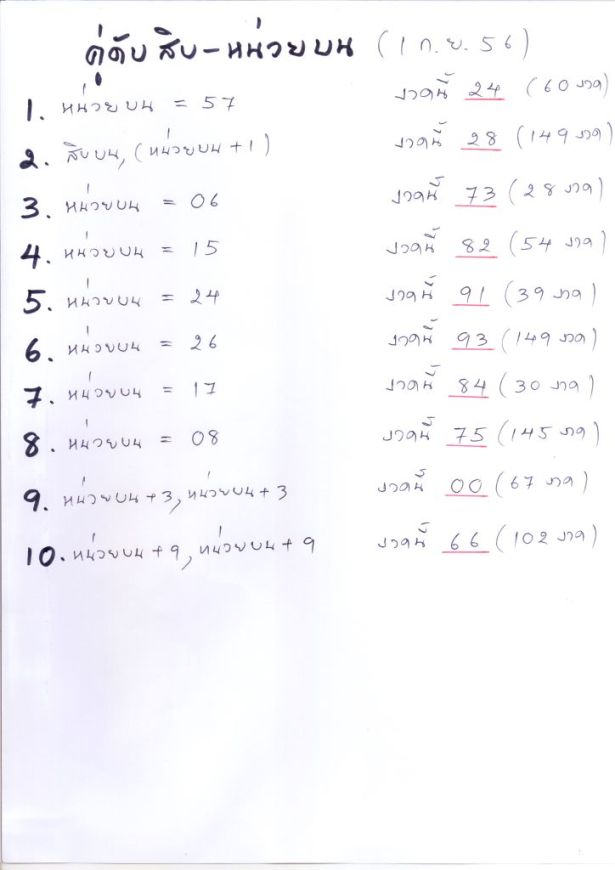 คู่ดับ สิบ-หน่วยบน (1 ก.ย. 56)
1. หน่วยบน = 57 งวดนี้ 24 (60 งวด)
2. สิบบน, (หน่วยบน+1) งวดนี้ 28 (149 งวด)
3. หน่วยบน = 06 งวดนี้ 73 (28 งวด)
4. หน่วยบน = 15 งวดนี้ 82 (54 งวด)
5. หน่วยบน = 24 งวดนี้ 91 (39 งวด)
6. หน่วยบน = 26 งวดนี้ 93 (149 งวด)
7. หน่วยบน = 17 งวดนี้ 84 (30 งวด)
8. หน่วยบน = 08 งวดนี้ 75 (145 งวด)
9. หน่วยบน+3, หน่วยบน+3 งวดนี้ 00 (67 งวด)
10. หน่วยบน+9, หน่วยบน+9 งวดนี้ 66 (102 งวด)